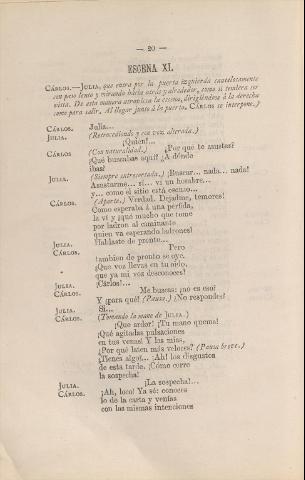 — 20 —
ESCENA XI.
CÁRLOS.—JULIA, que entra por la puerta izquierda cautelosamente
con paso lento y mirando hácia atrás y alrededor, como si temiera ser
vista. De esta manera atraviesa la escena, dirigiéndose á la derecha
como para salir. Al llegar junto á la puerta, CÁRLOS se interpone.)
CÁRLOS. Julia...
JULIA. (Retrocediendo y con voz alterada.)
¡Quien!...
CÁRLOS (Con naturalidad.) ¿Por qué te asustas?
¡Qué buscabas aquí! ¿A dónde
ibas?
JULIA. (Siempre entrecortada.) ¡Buscar... nada... nada!
Asustarme... si... vi un hombre...
y... como el sitio está escuro...
CÁRLOS. (Aparte.) Verdad. Dejadme, temores!
Como esperaba á una pérfida,
la ví y ¡qué mucho que tome
por ladron al caminante
quien va esperando ladrones!
JULIA. Hablaste de pronto...
CÁRLOS. Pero
tambien de pronto se oye.
¡Que voz llevas en tu oido,
que ya mi voz desconoces!
JULIA. ¡Cárlos!...
CÁRLOS. Me buscas: ¡no es eso!
Y ¡para qué! (Pausa.) ¡No respondes!
JULIA. Si...
CÁRLOS. (Tomando la mano de JULIA.)
¡Que ardor! ¡Tu mano quema!
¡Qué agitadas pulsaciones
en tus venas! Y las mias,
¿Por qué laten más veloces? (Pausa breve.)
¿Tienes algo!... ¡Ah! los disgustos
de esta tarde. ¡Cómo corre
la sospecha!
JULIA. ¡La sospecha!...
CÁRLOS. ¡Ah, loco! Ya sé: conoces
lo de la carta y venías
con las mismas intenciones